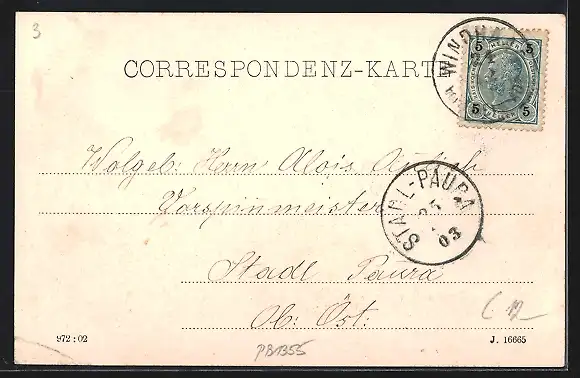 3
CORRESPONDENZ-KARTE
5 HELLER 5
5 5
WINDI
Wolgeb: Herrn Alois
Vorspinnmeister
STADL-PAURA
25
03
Stadl Paura
Ob: Öst:
972:02
PB1355
J. 16665